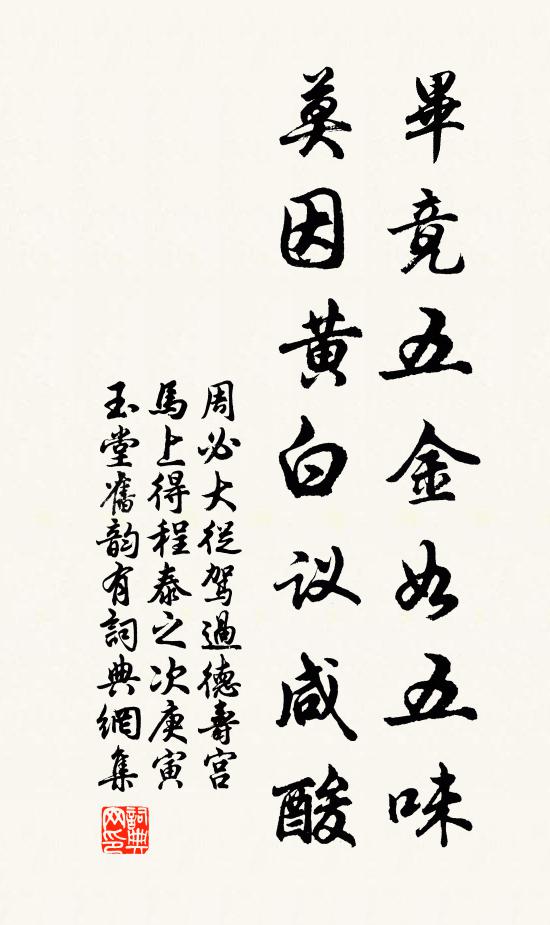 畢竟五金如五味
莫因黄白议咸酸
周必大從駕過德壽宫
馬上得程泰之次庚寅
玉堂舊韵有詞典網集
詞典
网印